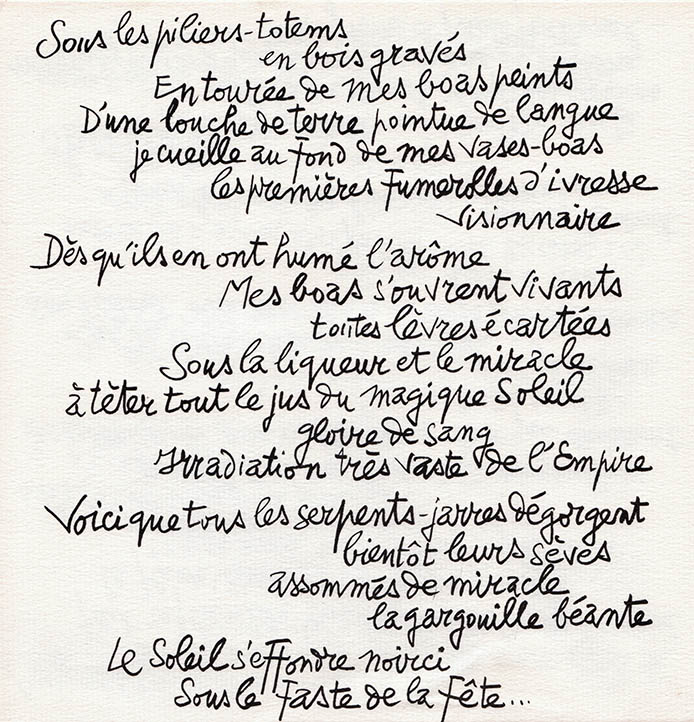 Sous les piliers-totems
en bois gravés
Entourée de mes boas peints
D'une louche de terre pointue de langue
je cueille au fond de mes vases-boas
les premières Fumerolles d'ivresse
Visionnaire
Dès qu'ils en ont humé l'arôme
Mes boas s'ouvrent vivants
toutes lèvres écartées
Sous la liqueur et le miracle
à têter tout le jus du magique Soleil
gloire de sang
Irradiation très vaste de l'Empire
Voici que tous les serpents-jarres dégorgent
bientôt leurs sèves
assommés de miracle
la gargouille béante
Le Soleil s'effondre noirci
Sous le Faste de la Fête...